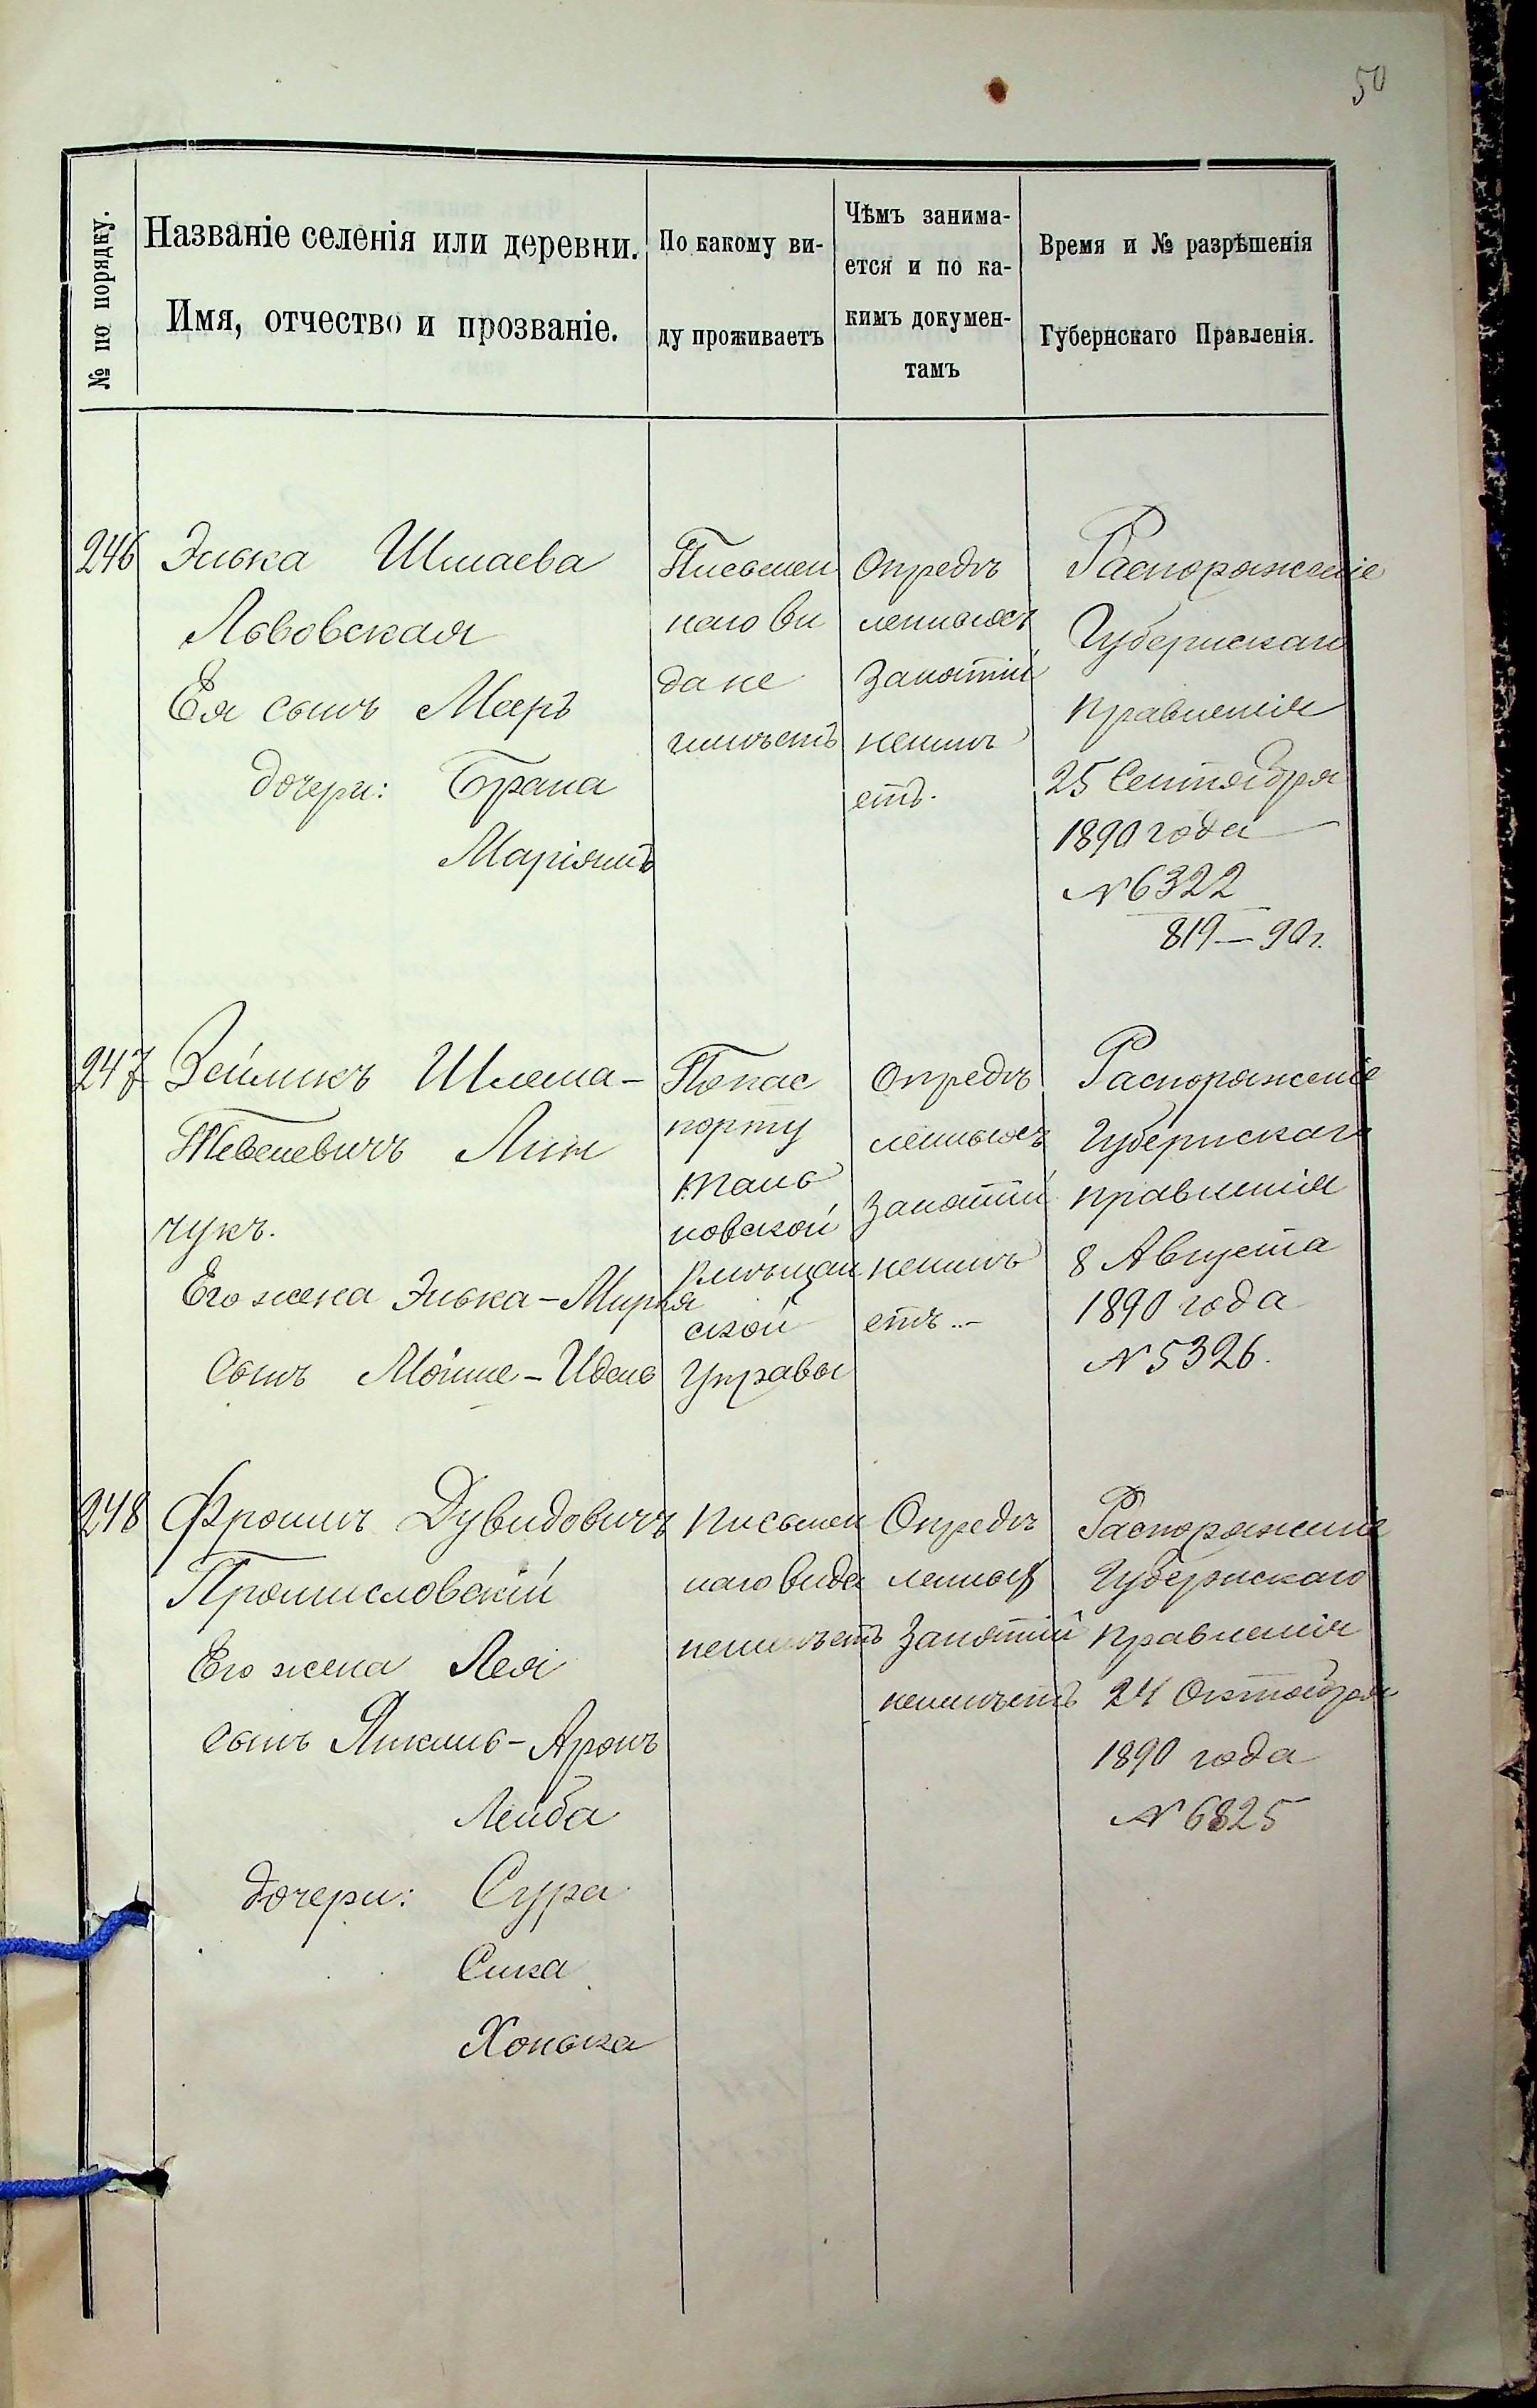 50
№ по порядку.
Названіе селенія или деревни.
Имя, отчество и прозваніе.
По какому ви-
ду проживаетъ
Чѣмъ занима-
ется и по ка-
кимъ докумен-
тамъ
Время и № разрѣшенія
Губернскаго Правленія.
246
Элька Шмаева
Львовская
Ея сынъ Мееръ
дочери: Брана
Маріямъ
Письмен
наго ви
да не
имѣетъ
Опредѣ
ленныхъ
Занятій
неимѣ
етъ.
Распоряженіе
Губернскаго
правленія
25 Сентября
1890 года
№ 6322
819 — 90 г.
247
Зейликъ Шлема-
Тевелевичъ Лин
чукъ.
Его жена Элька-Мирля
Сынъ Мойше-Идель
Попас
порту
новской
мѣщан
ской
Управы
Опредѣ
ленныхъ
Занятій
неимѣ
етъ..-
Распоряженіе
Губернскаго
правленія
8 Августа
1890 года
№ 5326.
248
Фроимъ Дувидовичъ
Промисловскій
Его жена Лея
сынъ Янкель-Аронъ
Лейба
дочери: Сура
Сика
Хонька
письмен
наго вида
неимѣетъ
Опредѣ
ленных
Занятій
неимѣетъ
Распоряженіе
Губернскаго
правленія
24 Октября
1890 года
№ 6825